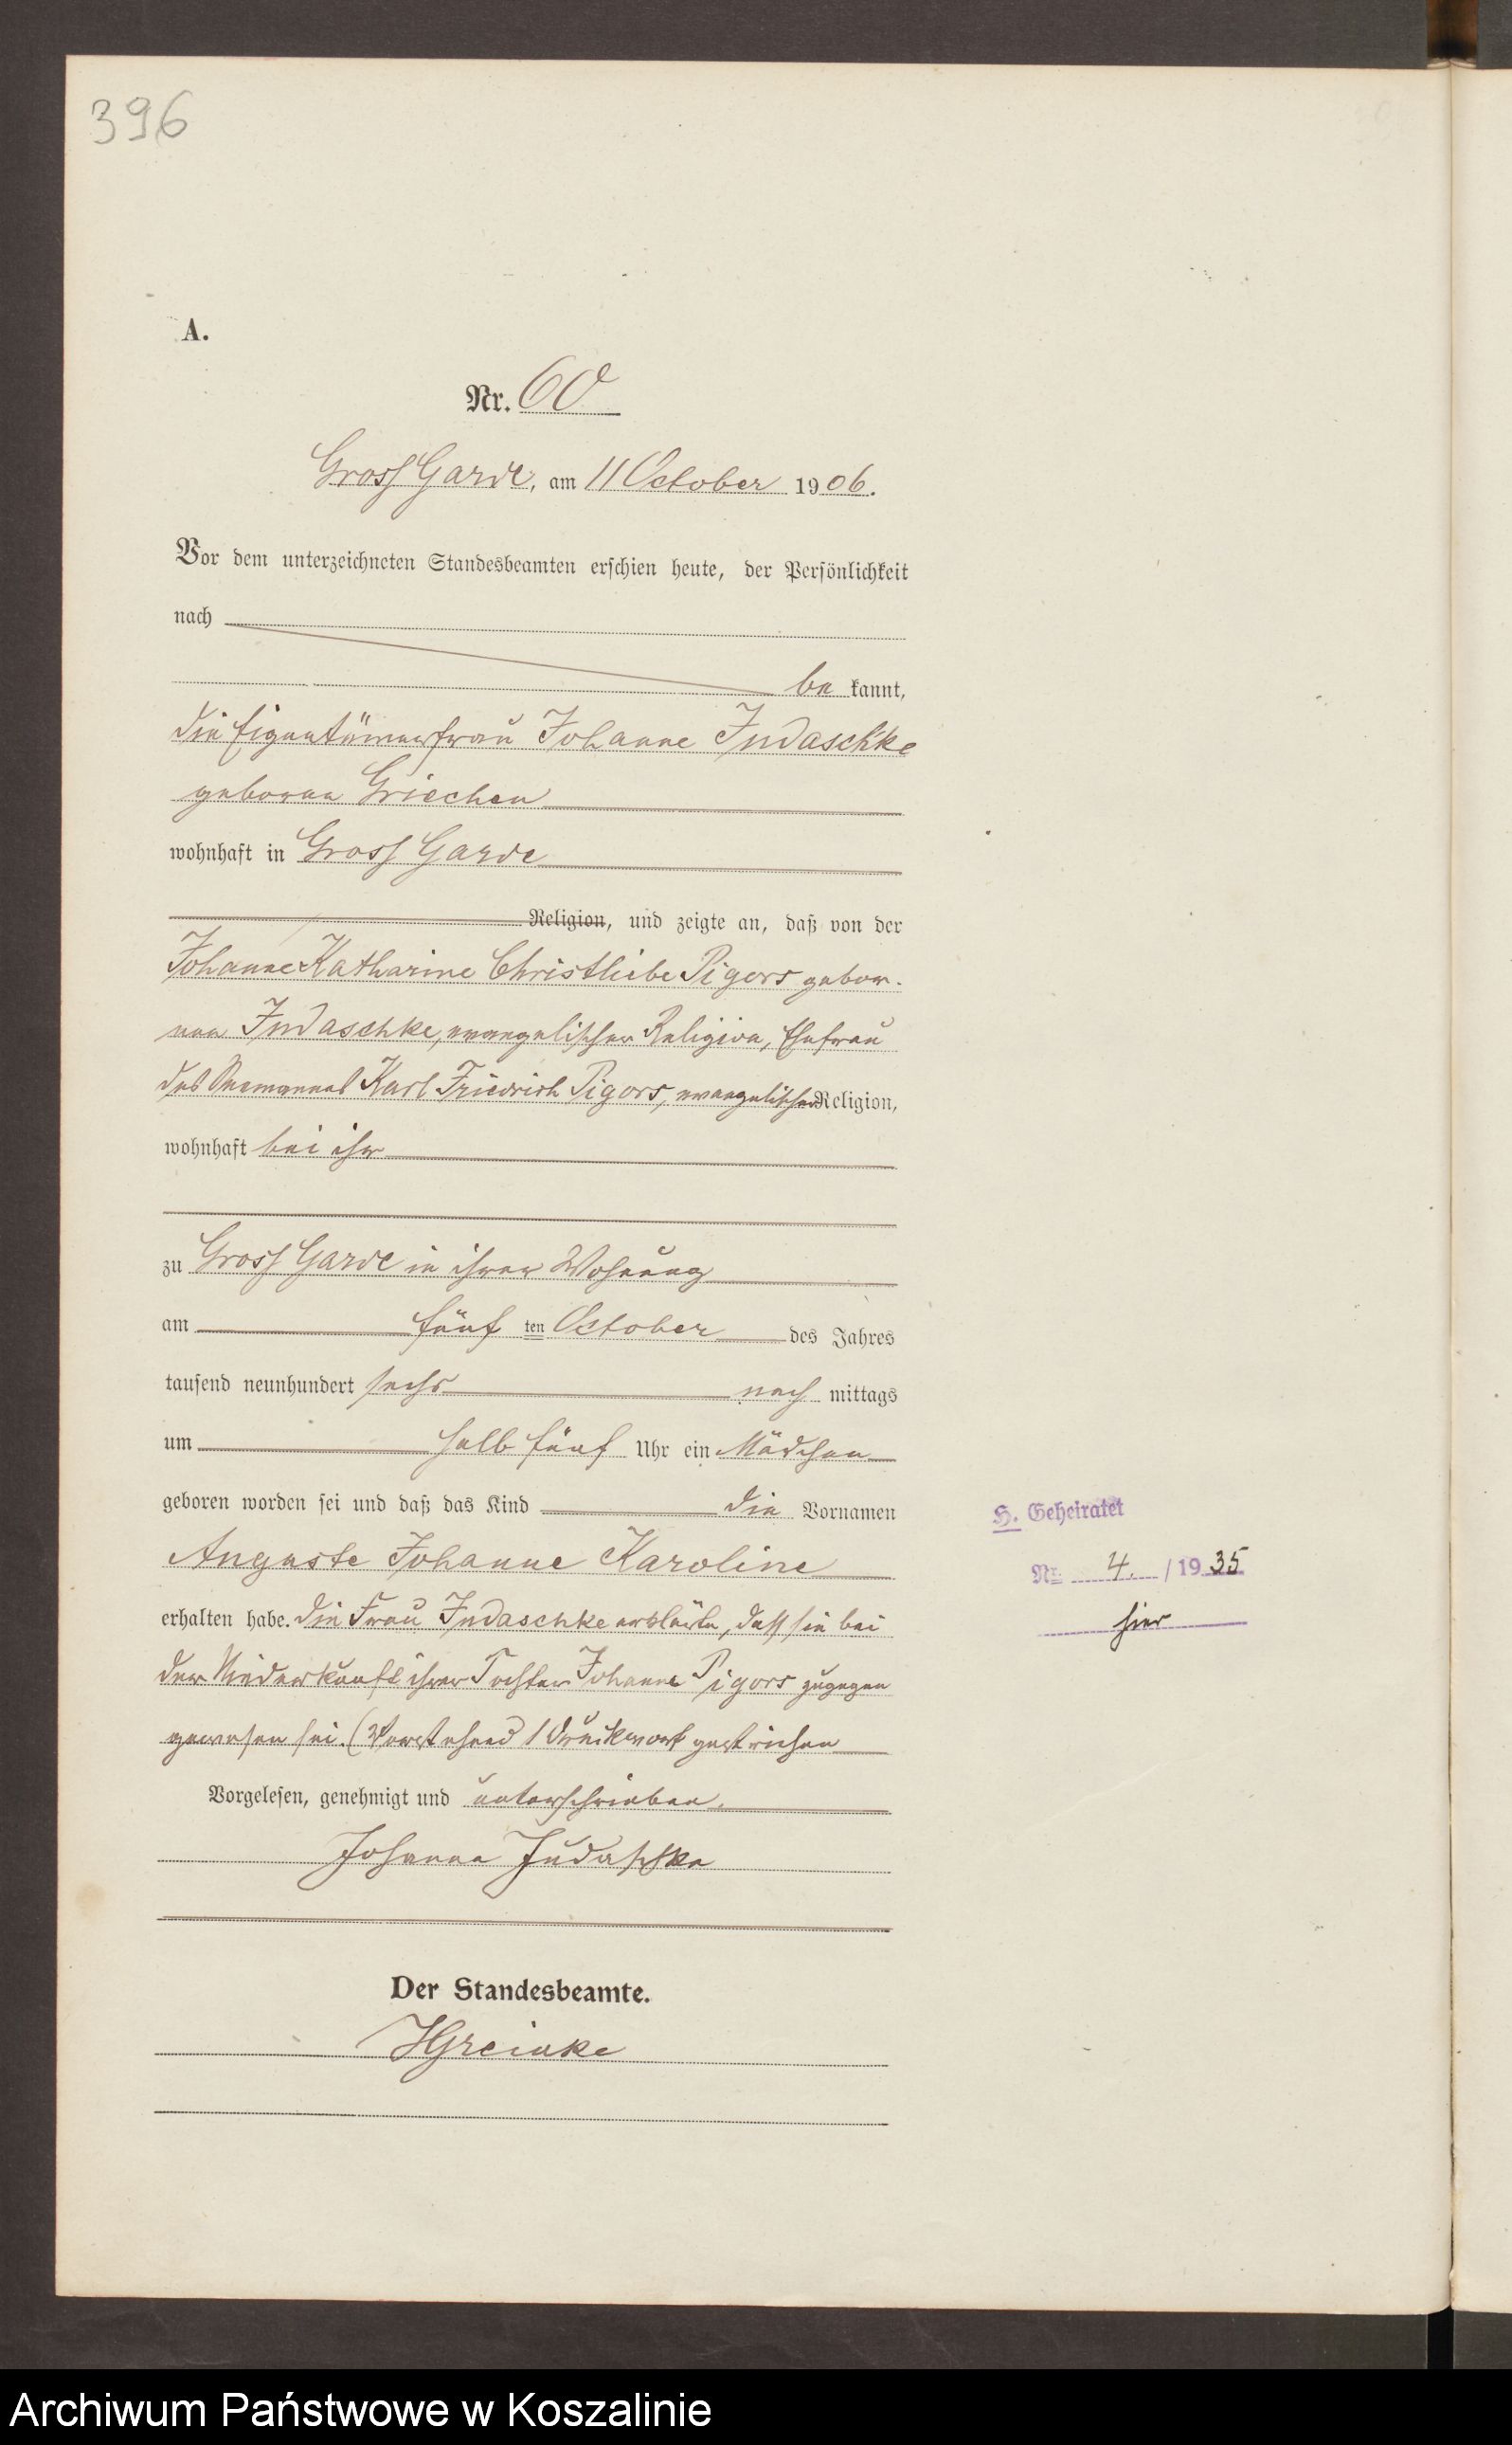 396
A.
Nr. 60
Gross Garde, am 11 October 1906.
Vor dem unterzeichneten Standesbeamten erschien heute, der Persönlichkeit
nach
be kannt,
die Eigentümerfrau Johanne Judaschke
geborne Griechen
wohnhaft in Gross Garde
Religion, und zeigte an, daß von der
Johanne Katharine Christliebe Pigors gebor-
nen Judaschke, evangelischer Religion, Ehefrau
des Seemannes Karl Friedrich Pigors, evangelischer Religion,
wohnhaft bei ihr
zu Gross Garde in ihrer Wohnung
am fünf ten October des Jahres
tausend neunhundert sechs nach mittags
um halb fünf Uhr ein Mädchen
geboren worden sei und daß das Kind die Vornamen
Auguste Johanne Karoline
erhalten habe. Die Frau Judaschke erklärte, dass sie bei
der Niederkunft ihrer Tochter Johanne Pigors zugegen
gewesen sei. (Vorstehend 1 Druckwort gestrichen
Vorgelesen, genehmigt und unterschrieben.
Johanna Judaschke
Der Standesbeamte.
HGreinke
H. Geheiratet
Nr. 4. / 1935
hier
Archiwum Państwowe w Koszalinie